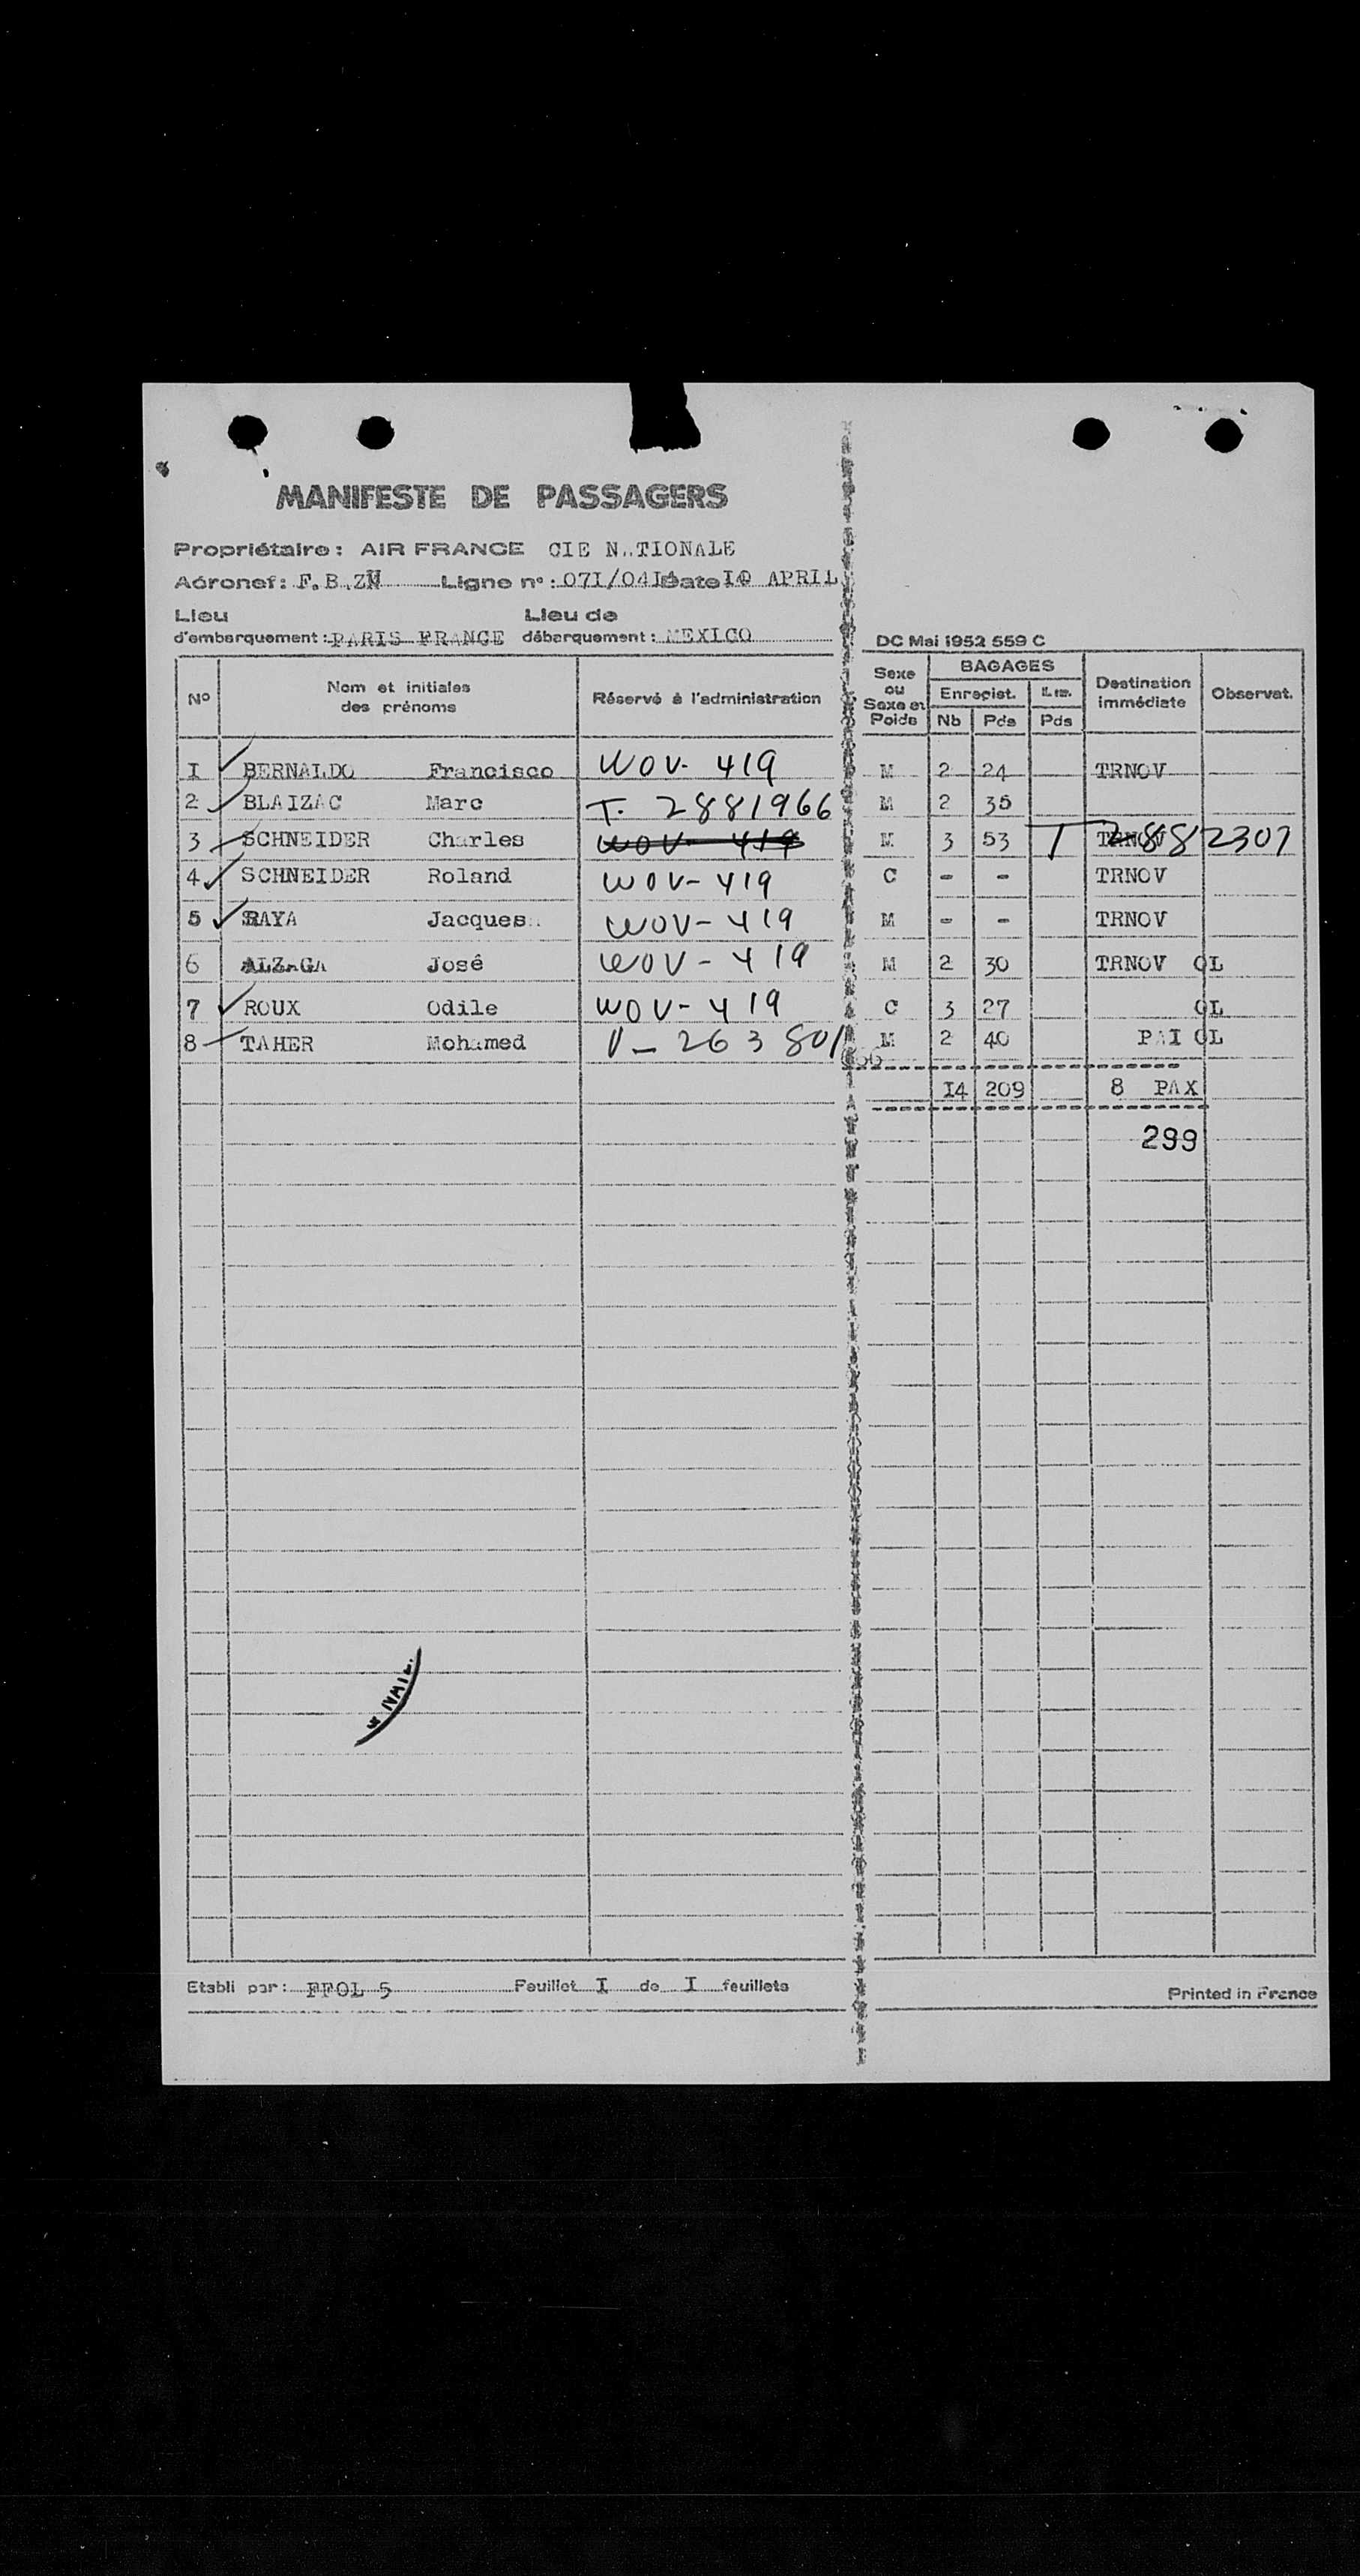 MANIFESTE DE PASSAGERS
Propriétaire: AIR FRANCE CIE N..TIONALE
Aéronef: F.B.ZN Ligne n°: 071/041 Date I0 APRIL
Lieu d'embarquement: PARIS FRANCE Lieu de débarquement: MEXICO
DC Mai 1952 559 C
N° Nom et initiales des prénoms Réservé à l'administration Sexe ou Sexe et Poids BAGAGES Enregist. Nb Pds Pds Destination immédiate Observat.
I BERNALDO Francisco WOV- 419 M 2 24 TRNOV
2 BLAIZAC Marc T. 2881966 M 2 35
3 SCHNEIDER Charles WOV- 419 M 3 53 TRNOV T 2882307
4 SCHNEIDER Roland WOV-419 C - - TRNOV
5 RAYA Jacques WOV-419 M - - TRNOV
6 ALZAGA José WOV-419 M 2 30 TRNOV OL
7 ROUX Odile WOV-419 C 3 27 OL
8 TAHER Mohamed V-263 801 M 2 40 PAI OL
I4 209 8 PAX
299
Etabli par: FFOL 5 Feuillet I de I feuillets
Printed in France